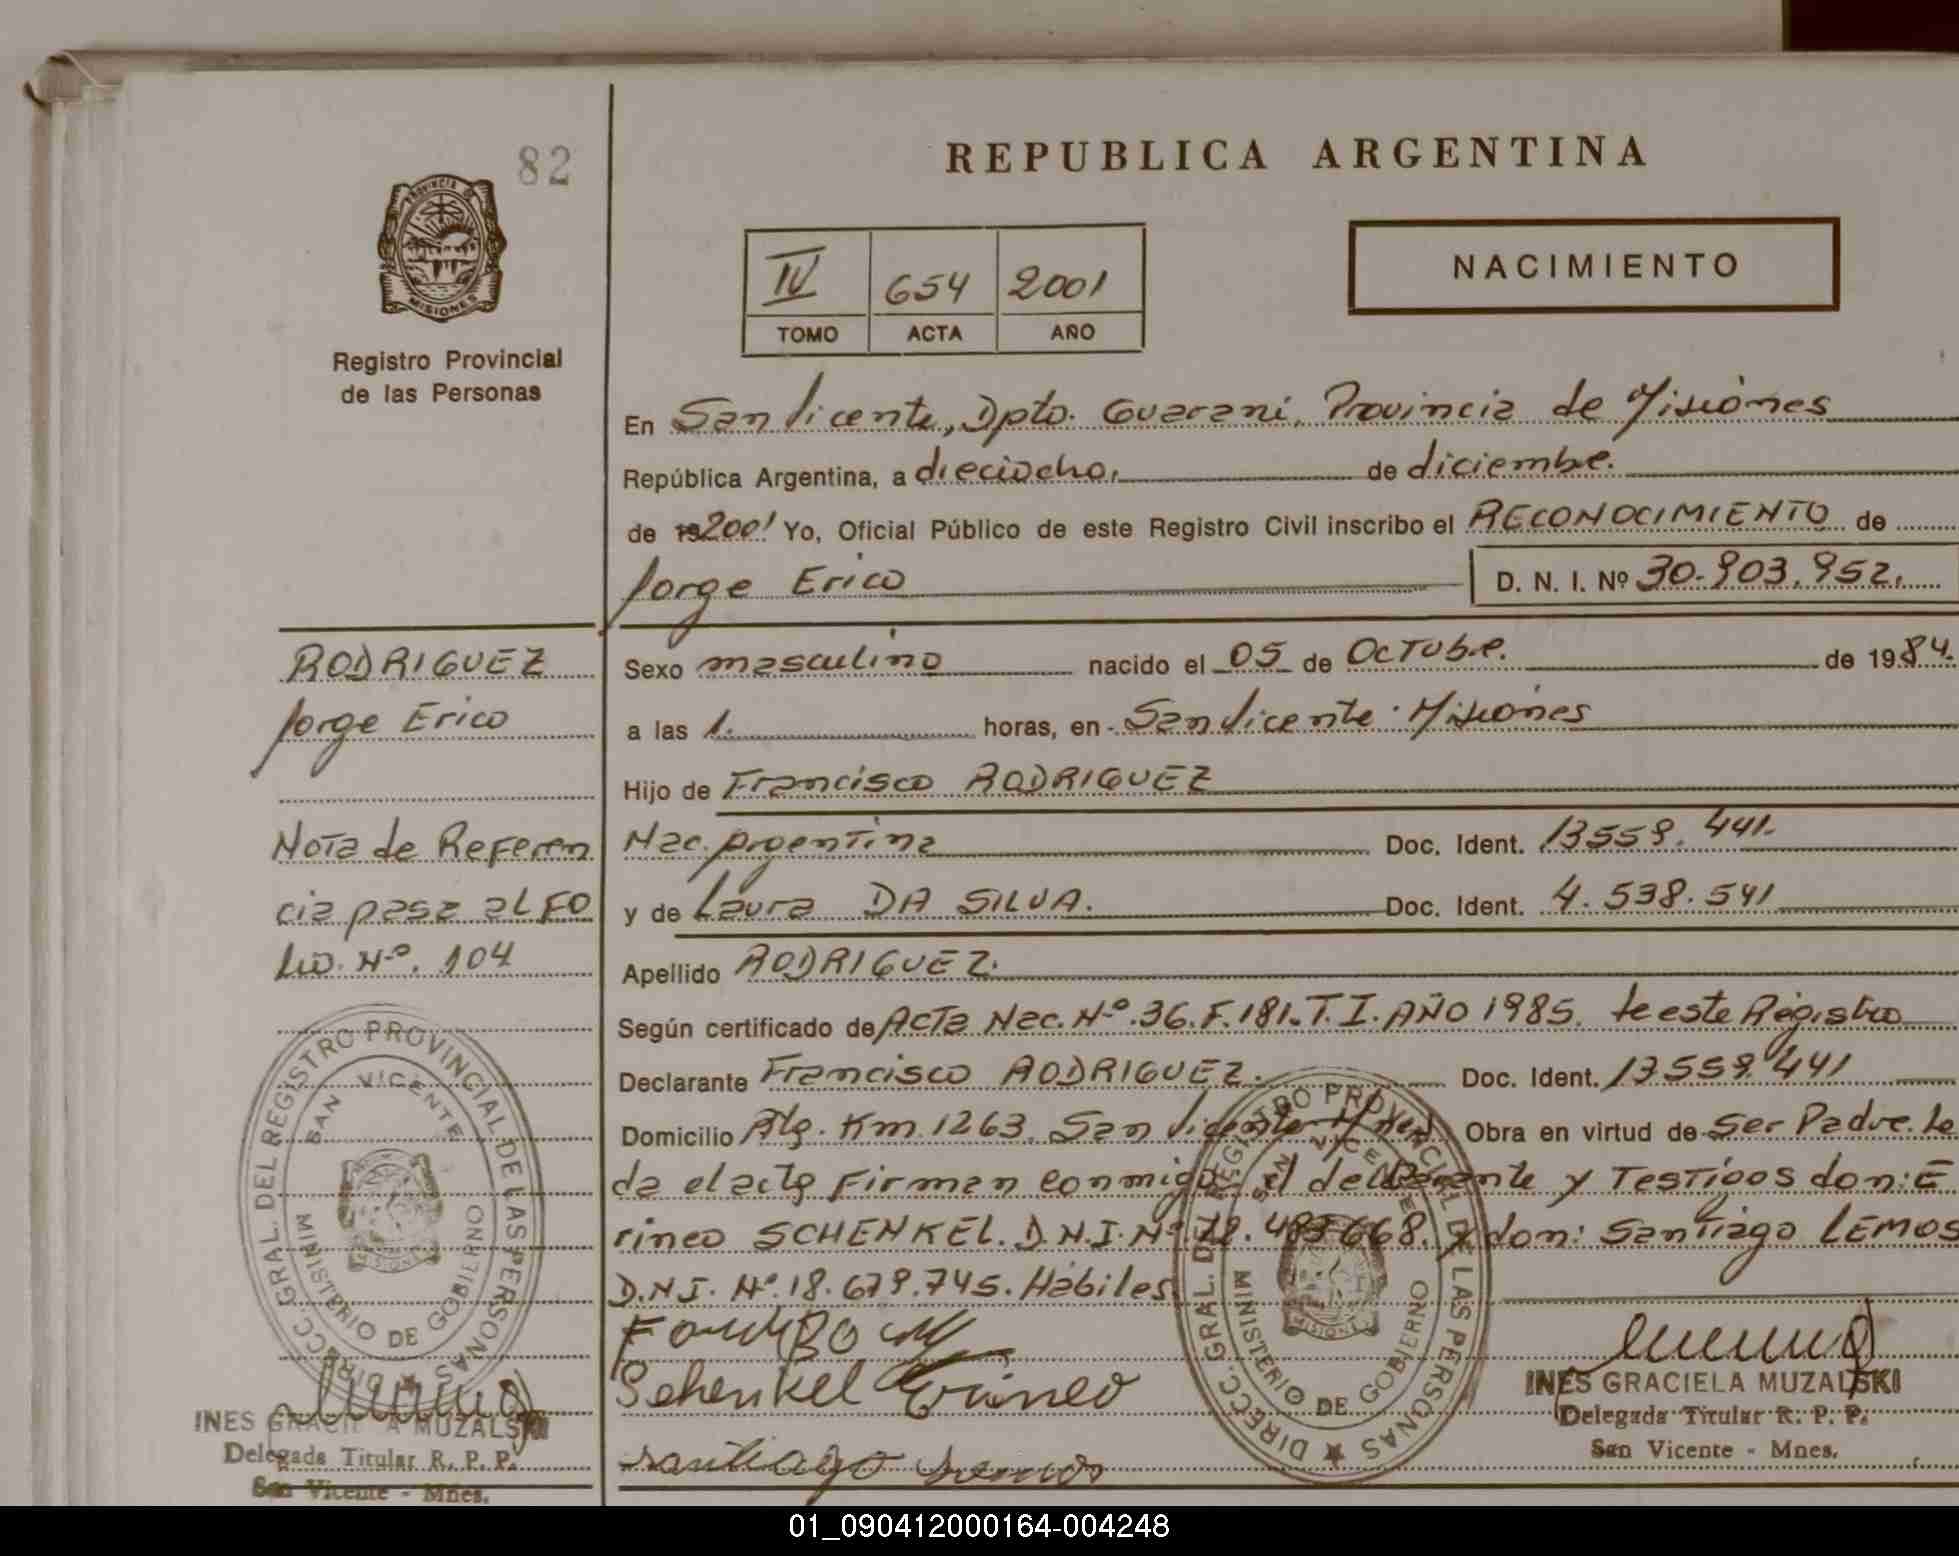 82
REPUBLICA ARGENTINA
PROVINCIA DE
MISIONES
Registro Provincial
de las Personas
IV 654 2001
TOMO ACTA AÑO
NACIMIENTO
En San Vicente, Dpto. Guarani, Provincia de Misiones
República Argentina, a dieciocho, de diciembre.
de 19 2001 Yo, Oficial Público de este Registro Civil inscribo el RECONOCIMIENTO de
Jorge Erico D. N. I. Nº 30.903.952.
RODRIGUEZ
Jorge Erico
Nota de Referen
cia pasa al FO
Lio. Nº. 104
Sexo masculino nacido el 05 de Octubre. de 1984.
a las 1. horas, en San Vicente - Misiones
Hijo de Francisco RODRIGUEZ
Nac. Argentina Doc. Ident. 13559.441.
y de Laura DA SILVA. Doc. Ident. 4.538.541
Apellido RODRIGUEZ.
Según certificado de Acta Nac. Nº. 36. F. 181. T. I. AÑO 1985. de este Registro
Declarante Francisco RODRIGUEZ. Doc. Ident. 13559.441
Domicilio Km. 1263. San Vicente Obra en virtud de Ser Padre. Le
da el acta Firman conmigo el declarante y Testigos don: E
rineo SCHENKEL. D.N.I. Nº y don: Santiago LEMOS
D.N.I. Nº. 18.679.745. Hábiles
Schenkel Erineo
Santiago Lemos
DIRECC. GRAL. DEL REGISTRO PROVINCIAL DE LAS PERSONAS
SAN VICENTE
MINISTERIO DE GOBIERNO
INES GRACIELA MUZALSKI
Delegada Titular R. P. P.
San Vicente - Mnes.
DIRECC. GRAL. DEL REGISTRO PROVINCIAL DE LAS PERSONAS
SAN VICENTE
MISIONES
MINISTERIO DE GOBIERNO
INES GRACIELA MUZALSKI
Delegada Titular R. P. P.
San Vicente - Mnes.
01_090412000164-004248